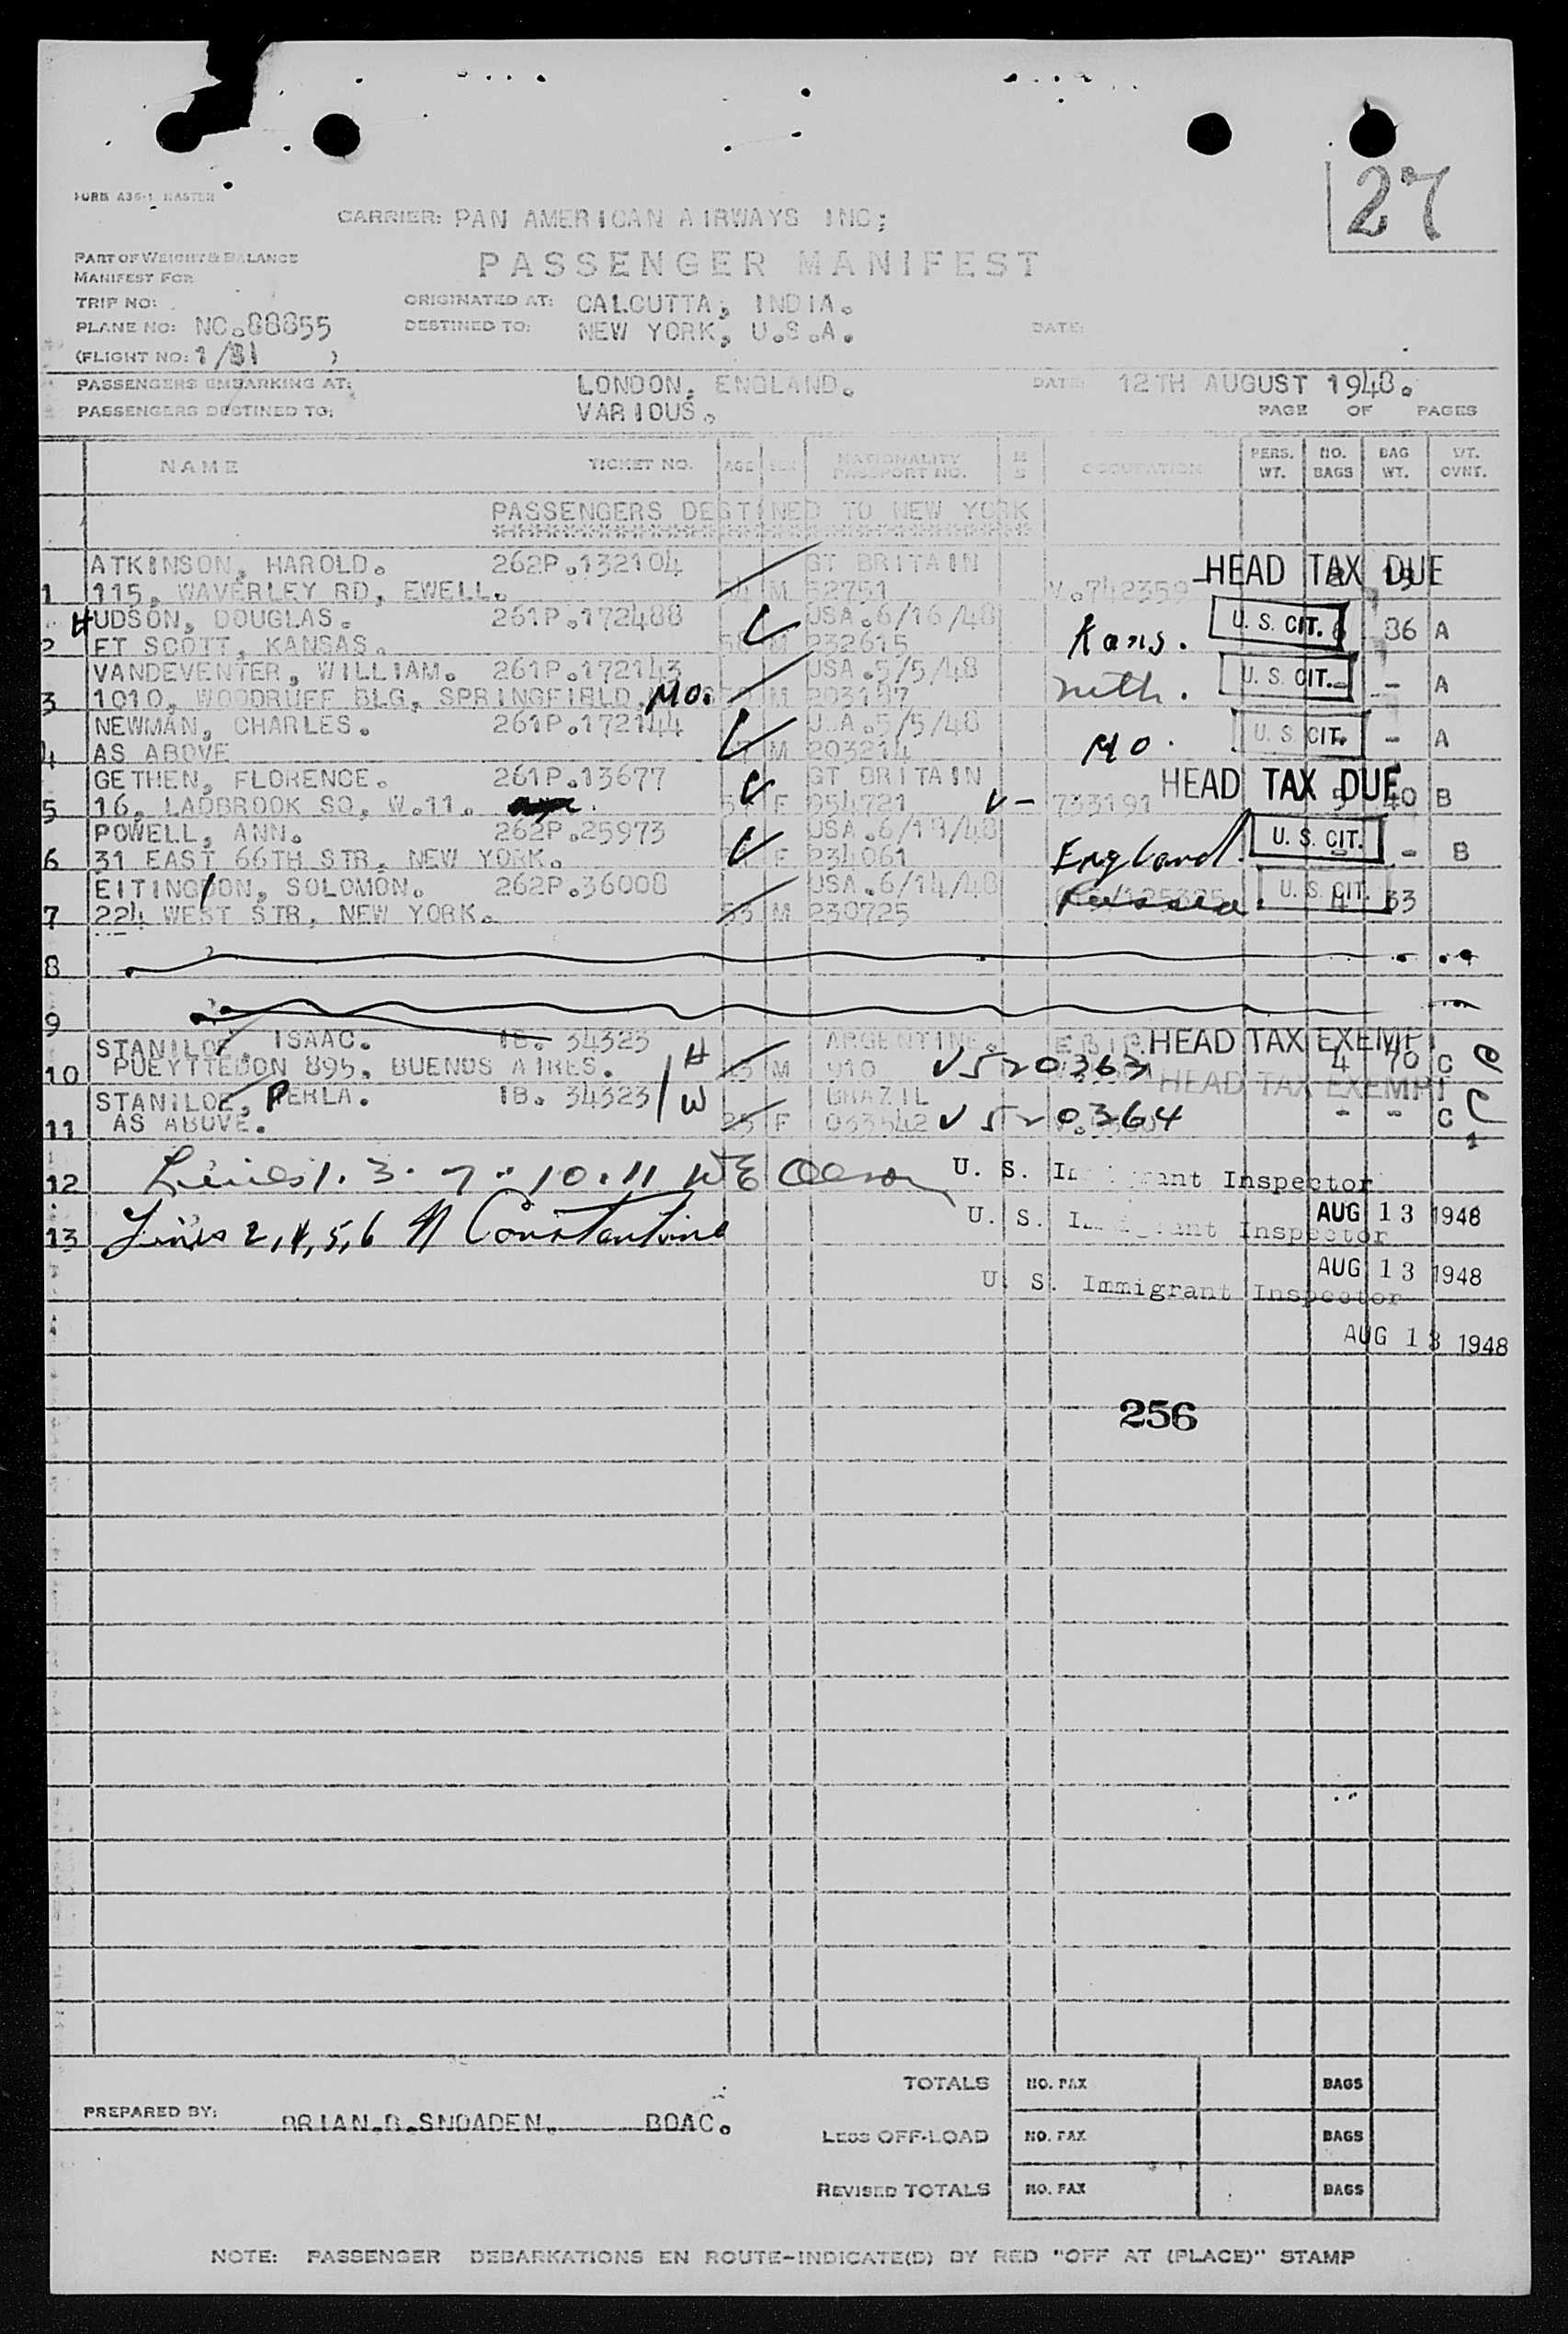 27
FORM A36-1 MASTER
CARRIER: PAN AMERICAN AIRWAYS INC;
PART OF WEIGHT & BALANCE
MANIFEST FOR
PASSENGER MANIFEST
TRIP NO:
ORIGINATED AT: CALCUTTA, INDIA.
PLANE NO: NC.88855
DESTINED TO: NEW YORK, U.S.A.
DATE:
(FLIGHT NO: 1/31 )
PASSENGERS EMBARKING AT: LONDON, ENGLAND.
DATE: 12TH AUGUST 1948.
PASSENGERS DESTINED TO: VARIOUS.
PAGE OF PAGES
NAME TICKET NO. AGE SEX NATIONALITY PASSPORT NO. M S OCCUPATION PERS. WT. NO. BAGS BAG WT. WT. CVNT.
PASSENGERS DESTINED TO NEW YORK
******************************
ATKINSON, HAROLD. 262P.132104 GT BRITAIN HEAD TAX DUE
1 115, WAVERLEY RD, EWELL. M 52751 V.742359
HUDSON, DOUGLAS. 261P.172488 USA.6/16/48 U. S. CIT.
2 FT SCOTT, KANSAS. 58 M 232615 Kans. 36 A
VANDEVENTER, WILLIAM. 261P.172143 USA.5/5/48 U. S. CIT.
3 1010, WOODRUFF BLG, SPRINGFIELD, MO. M 203187 - - A
NEWMAN, CHARLES. 261P.172144 U.A.5/5/48 U. S. CIT.
4 AS ABOVE M 203214 Mo. - A
GETHEN, FLORENCE. 261P.13677 GT BRITAIN HEAD TAX DUE
5 16, LADBROOK SQ, W.11. F 954721 V - 733191 5 40 B
POWELL, ANN. 262P.25973 USA.6/18/48 U. S. CIT.
6 31 EAST 66TH STR, NEW YORK. F 234061 England - - B
EITINGDON, SOLOMON. 262P.36008 USA.6/14/48 U. S. CIT.
7 224 WEST STR, NEW YORK. 53 M 230725 Russia. 4 33
8
9
STANILOE, ISAAC. IB. 34323 ARGENTINE. HEAD TAX EXEMPT
10 PUEYTTEDON 895, BUENOS AIRES. H M 910 V520363 4 70 C
STANILOE, PERLA. IB. 34323 W BRAZIL HEAD TAX EXEMPT
11 AS ABOVE. 25 F 033542 V520364 - - C
12 Lines 1. 3. 7. 10. 11 WE Olson U. S. Immigrant Inspector
AUG 13 1948
13 Lines 2, 4, 5, 6 N Constantine U. S. Immigrant Inspector
AUG 13 1948
U. S. Immigrant Inspector
AUG 13 1948
256
TOTALS NO. PAX BAGS
PREPARED BY: BRIAN.B.SNOADEN. BOAC.
LESS OFF-LOAD NO. PAX BAGS
REVISED TOTALS NO. PAX BAGS
NOTE: PASSENGER DEBARKATIONS EN ROUTE-INDICATE(D) BY RED "OFF AT (PLACE)" STAMP